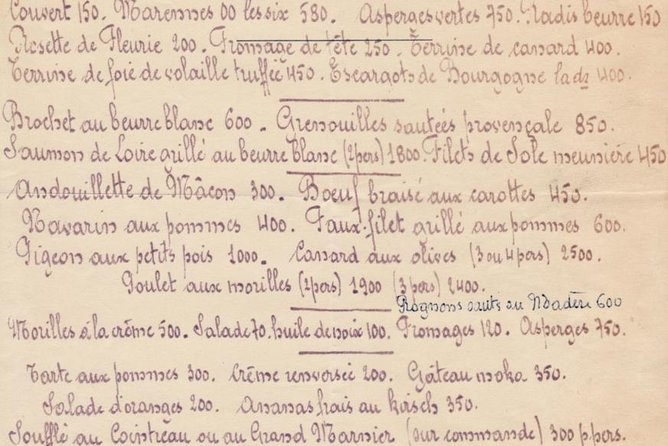 Couvert 150. Marennes 00 les six 580. Asperges vertes 750. Radis beurre 150
Rosette de Fleurie 200. Fromage de tête 250. Terrine de canard 400.
Terrine de foie de volaille truffée 450. Escargots de Bourgogne la dz 400.
Brochet au beurre blanc 600. Grenouilles sautées provençale 850.
Saumon de Loire grillé au beurre blanc (2 pers) 1800. Filets de Sole meunière 450
Andouillette de Mâcon 300. Boeuf braisé aux carottes 450.
Navarin aux pommes 400. Faux-filet grillé aux pommes 600.
Pigeon aux petits pois 1000. Canard aux olives (3 ou 4 pers) 2500.
Poulet aux morilles (2 pers) 1900 (3 pers) 2400.
Rognons sautés au Madère 600
Morilles à la crême 500. Salade 70. huile de noix 100. Fromages 120. Asperges 750.
Tarte aux pommes 300. Crême renversée 200. Gâteau moka 350.
Salade d'oranges 200. Ananas frais au kirsch 350.
Soufflé au Cointreau ou au Grand Marnier (sur commande) 300 p. pers.